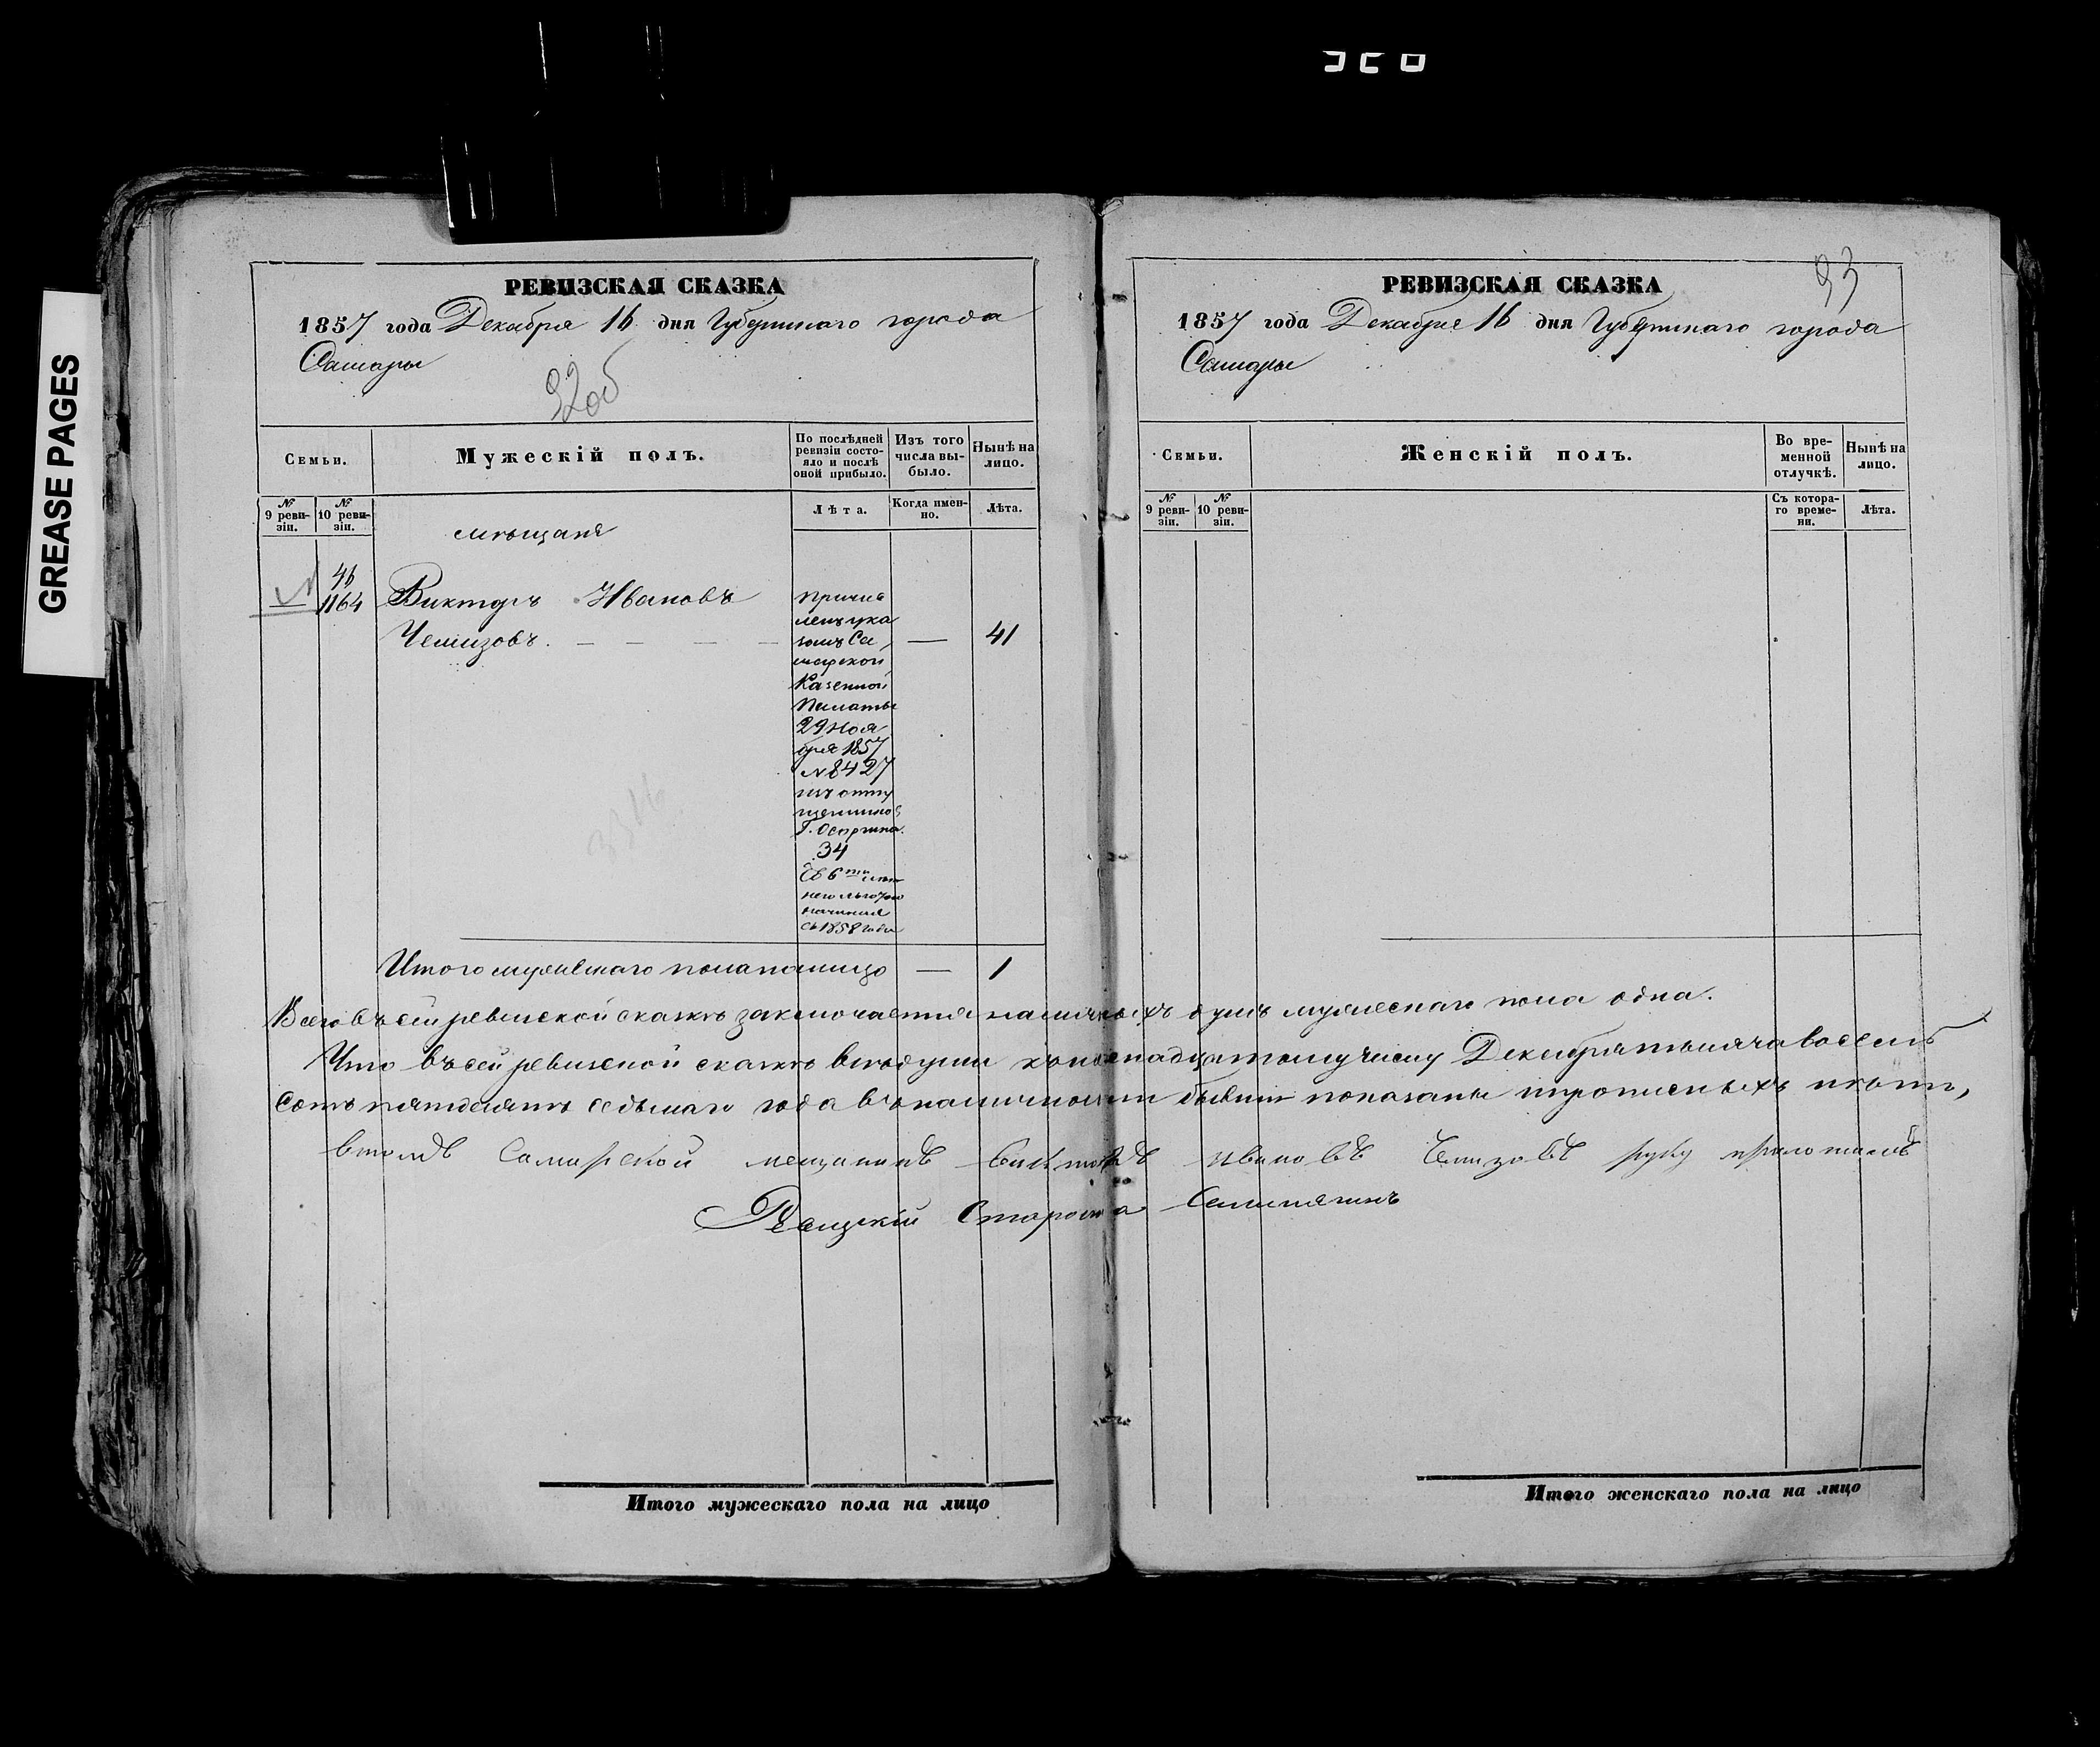 GREASE PAGES
РЕВИЗСКАЯ СКАЗКА
1857 года Декабря 16 дня Губернскаго города
Самары
92об
Семьи.
Мужескій полъ.
По послѣдней ревизіи состояло и послѣ оной прибыло.
Изъ того числа выбыло.
Нынѣ на лицо.
№ 9 ревизіи.
№ 10 ревизіи.
Лѣта.
Когда именно.
Лѣта.
мѣщане
46
1164
Викторъ Ивановъ
Чемизовъ. — — — —
— 41
Причис
ленъ ука
зомъ Са
марской
Казенной
Палаты
29 Ноя
бря 1857
№ 8427
изъ отпу
щенников
Г. Осоргина.
34
Съ 6
начиная
съ 1858 года
Итого мужескаго пола на лицо — 1
Всего въ сей ревизской сказкѣ заключается наличныхъ душъ мужескаго пола одна.
Что въ сей ревизской сказкѣ всѣ души къ шестнадцатому числу Декабря тысяча восемь
сотъ пятдесятъ седьмаго года въ наличности бывшіе показаны и прописныхъ нѣтъ,
втомъ Самарской мещанинъ Викторъ Ивановъ Чемизовъ руку приложилъ
Староста
РЕВИЗСКАЯ СКАЗКА
93
1857 года Декабря 16 дня Губернскаго города
Самары
Семьи.
Женскій полъ.
Во временной отлучкѣ.
Нынѣ на лицо.
№ 9 ревизіи.
№ 10 ревизіи.
Съ котораго времени.
Лѣта.
Итого мужескаго пола на лицо
Итого женскаго пола на лицо